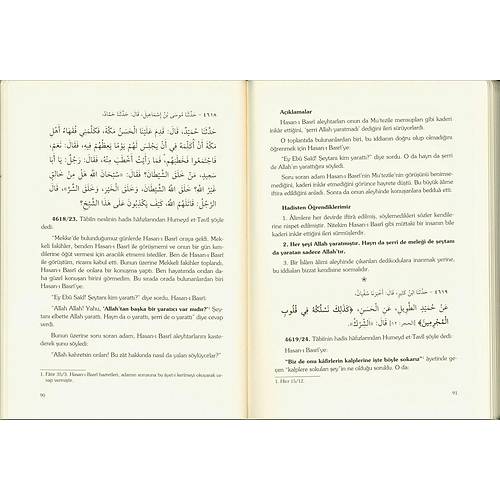 ٤٦١٨ - حَدَّثَنَا مُوسَى بْنُ إِسْمَاعِيلَ، قَالَ: حَدَّثَنَا حَمَّادٌ،
حَدَّثَنَا حُمَيْدٌ، قَالَ: قَدِمَ عَلَيْنَا الْحَسَنُ مَكَّةَ، فَكَلَّمَنِي فُقَهَاءُ أَهْلِ
مَكَّةَ أَنْ أُكَلِّمَهُ فِي أَنْ يَجْلِسَ لَهُمْ يَوْمًا يَعِظُهُمْ فِيهِ، فَقَالَ: نَعَمْ،
فَاجْتَمَعُوا فَخَطَبَهُمْ، فَمَا رَأَيْتُ أَخْطَبَ مِنْهُ، فَقَالَ: رَجُلٌ: يَا أَبَا
سَعِيدٍ، مَنْ خَلَقَ الشَّيْطَانَ؟ فَقَالَ: «سُبْحَانَ اللَّهِ هَلْ مِنْ خَالِقٍ
غَيْرُ اللَّهِ؟ خَلَقَ اللَّهُ الشَّيْطَانَ، وَخَلَقَ الْخَيْرَ، وَخَلَقَ الشَّرَّ»، قَالَ
الرَّجُلُ: قَاتَلَهُمُ اللَّهُ، كَيْفَ يَكْذِبُونَ عَلَى هَذَا الشَّيْخِ؟
4618/23. Tâbiîn neslinin hadis hâfızlarından Humeyd et-Tavîl şöyle
dedi:
"Mekke'de bulunduğumuz günlerde Hasan-ı Basrî oraya geldi. Mek-
keli fakihler, benden Hasan-ı Basrî ile konuşmamı ve onun bir gün ken-
dilerine öğüt vermesi için aracılık etmemi istediler. Ben de Hasan-ı Basrî
ile görüştüm, ricamı kabul etti. Bunun üzerine Mekkeli fakihler toplandı,
Hasan-ı Basrî de onlara bir konuşma yaptı. Ben hayatımda ondan da-
ha güzel konuşan birini görmedim. Bu sırada orada bulunanlardan biri
Hasan-ı Basrî'ye:
"Ey Ebû Saîd! Şeytanı kim yarattı?" diye sordu. Hasan-ı Basrî:
"Allah Allah! Yahu, "Allah'tan başka bir yaratıcı var mıdır?" Şey-
tanı elbette Allah yarattı. Hayrı da o yarattı, şerri de o yarattı" diye cevap
verdi.
Bunun üzerine soru soran adam, Hasan-ı Basrî aleyhtarlarını kaste-
derek şunu söyledi:
"Allah kahretsin onları! Bu zât hakkında nasıl da yalan söylüyorlar?"
1. Fâtır 35/3. Hasan-ı Basrî hazretleri, adamın sorusuna bu âyet-i kerîmeyi okuyarak ce-
vap vermiştir.
90
Açıklamalar
Hasan-ı Basrî aleyhtarları onun da Mu'tezile mensupları gibi kaderi
inkâr ettiğini, 'şerri Allah yaratmadı' dediğini ileri sürüyorlardı.
O toplantıda bulunanlardan biri, bu iddianın doğru olup olmadığını
öğrenmek için Hasan-ı Basrî'ye:
"Ey Ebû Saîd! Şeytanı kim yarattı?" diye sordu. O da hayrı da şerri
de Allah'ın yarattığını söyledi.
Soru soran adam Hasan-ı Basrî'nin Mu'tezile'nin görüşünü benimse-
mediğini, kaderi inkâr etmediğini görünce hayrete düştü. Bu büyük âlime
iftira edildiğini anladı. Sonra da onun aleyhinde konuşanlara beddua etti.
Hadisten Öğrendiklerimiz
1. Âlimlere her devirde iftira edilmiş, söylemedikleri sözler kendile-
rine nispet edilmiştir. Nitekim Hasan-ı Basrî gibi müttaki bir insanın bile
kaderi inkâr ettiğini ileri sürmüşlerdir.
2. Her şeyi Allah yaratmıştır. Hayrı da şerri de meleği de şeytanı
da yaratan sadece Allah'tır.
3. Bir İslâm âlimi aleyhinde çıkarılan dedikodulara inanmak yerine,
bu iddiaları bizzat kendisine sormalıdır.
*
٤٦١٩ - حَدَّثَنَا ابْنُ كَثِيرٍ، قَالَ: أَخْبَرَنَا سُفْيَانُ،
عَنْ حُمَيْدٍ الطَّوِيلِ، عَنِ الْحَسَنِ، ﴿كَذَلِكَ نَسْلُكُهُ فِي قُلُوبِ
الْمُجْرِمِينَ﴾ [الحجر: ١٢] قَالَ: «الشِّرْكُ».
4619/24. Tâbiînin hadis hâfızlarından Humeyd et-Tavîl şöyle dedi:
Hasan-ı Basrî'ye:
"Biz de onu kâfirlerin kalplerine işte böyle sokarız" âyetinde ge-
çen "kalplere sokulan şey"in ne olduğu soruldu. O da:
1. Hicr 15/12.
91